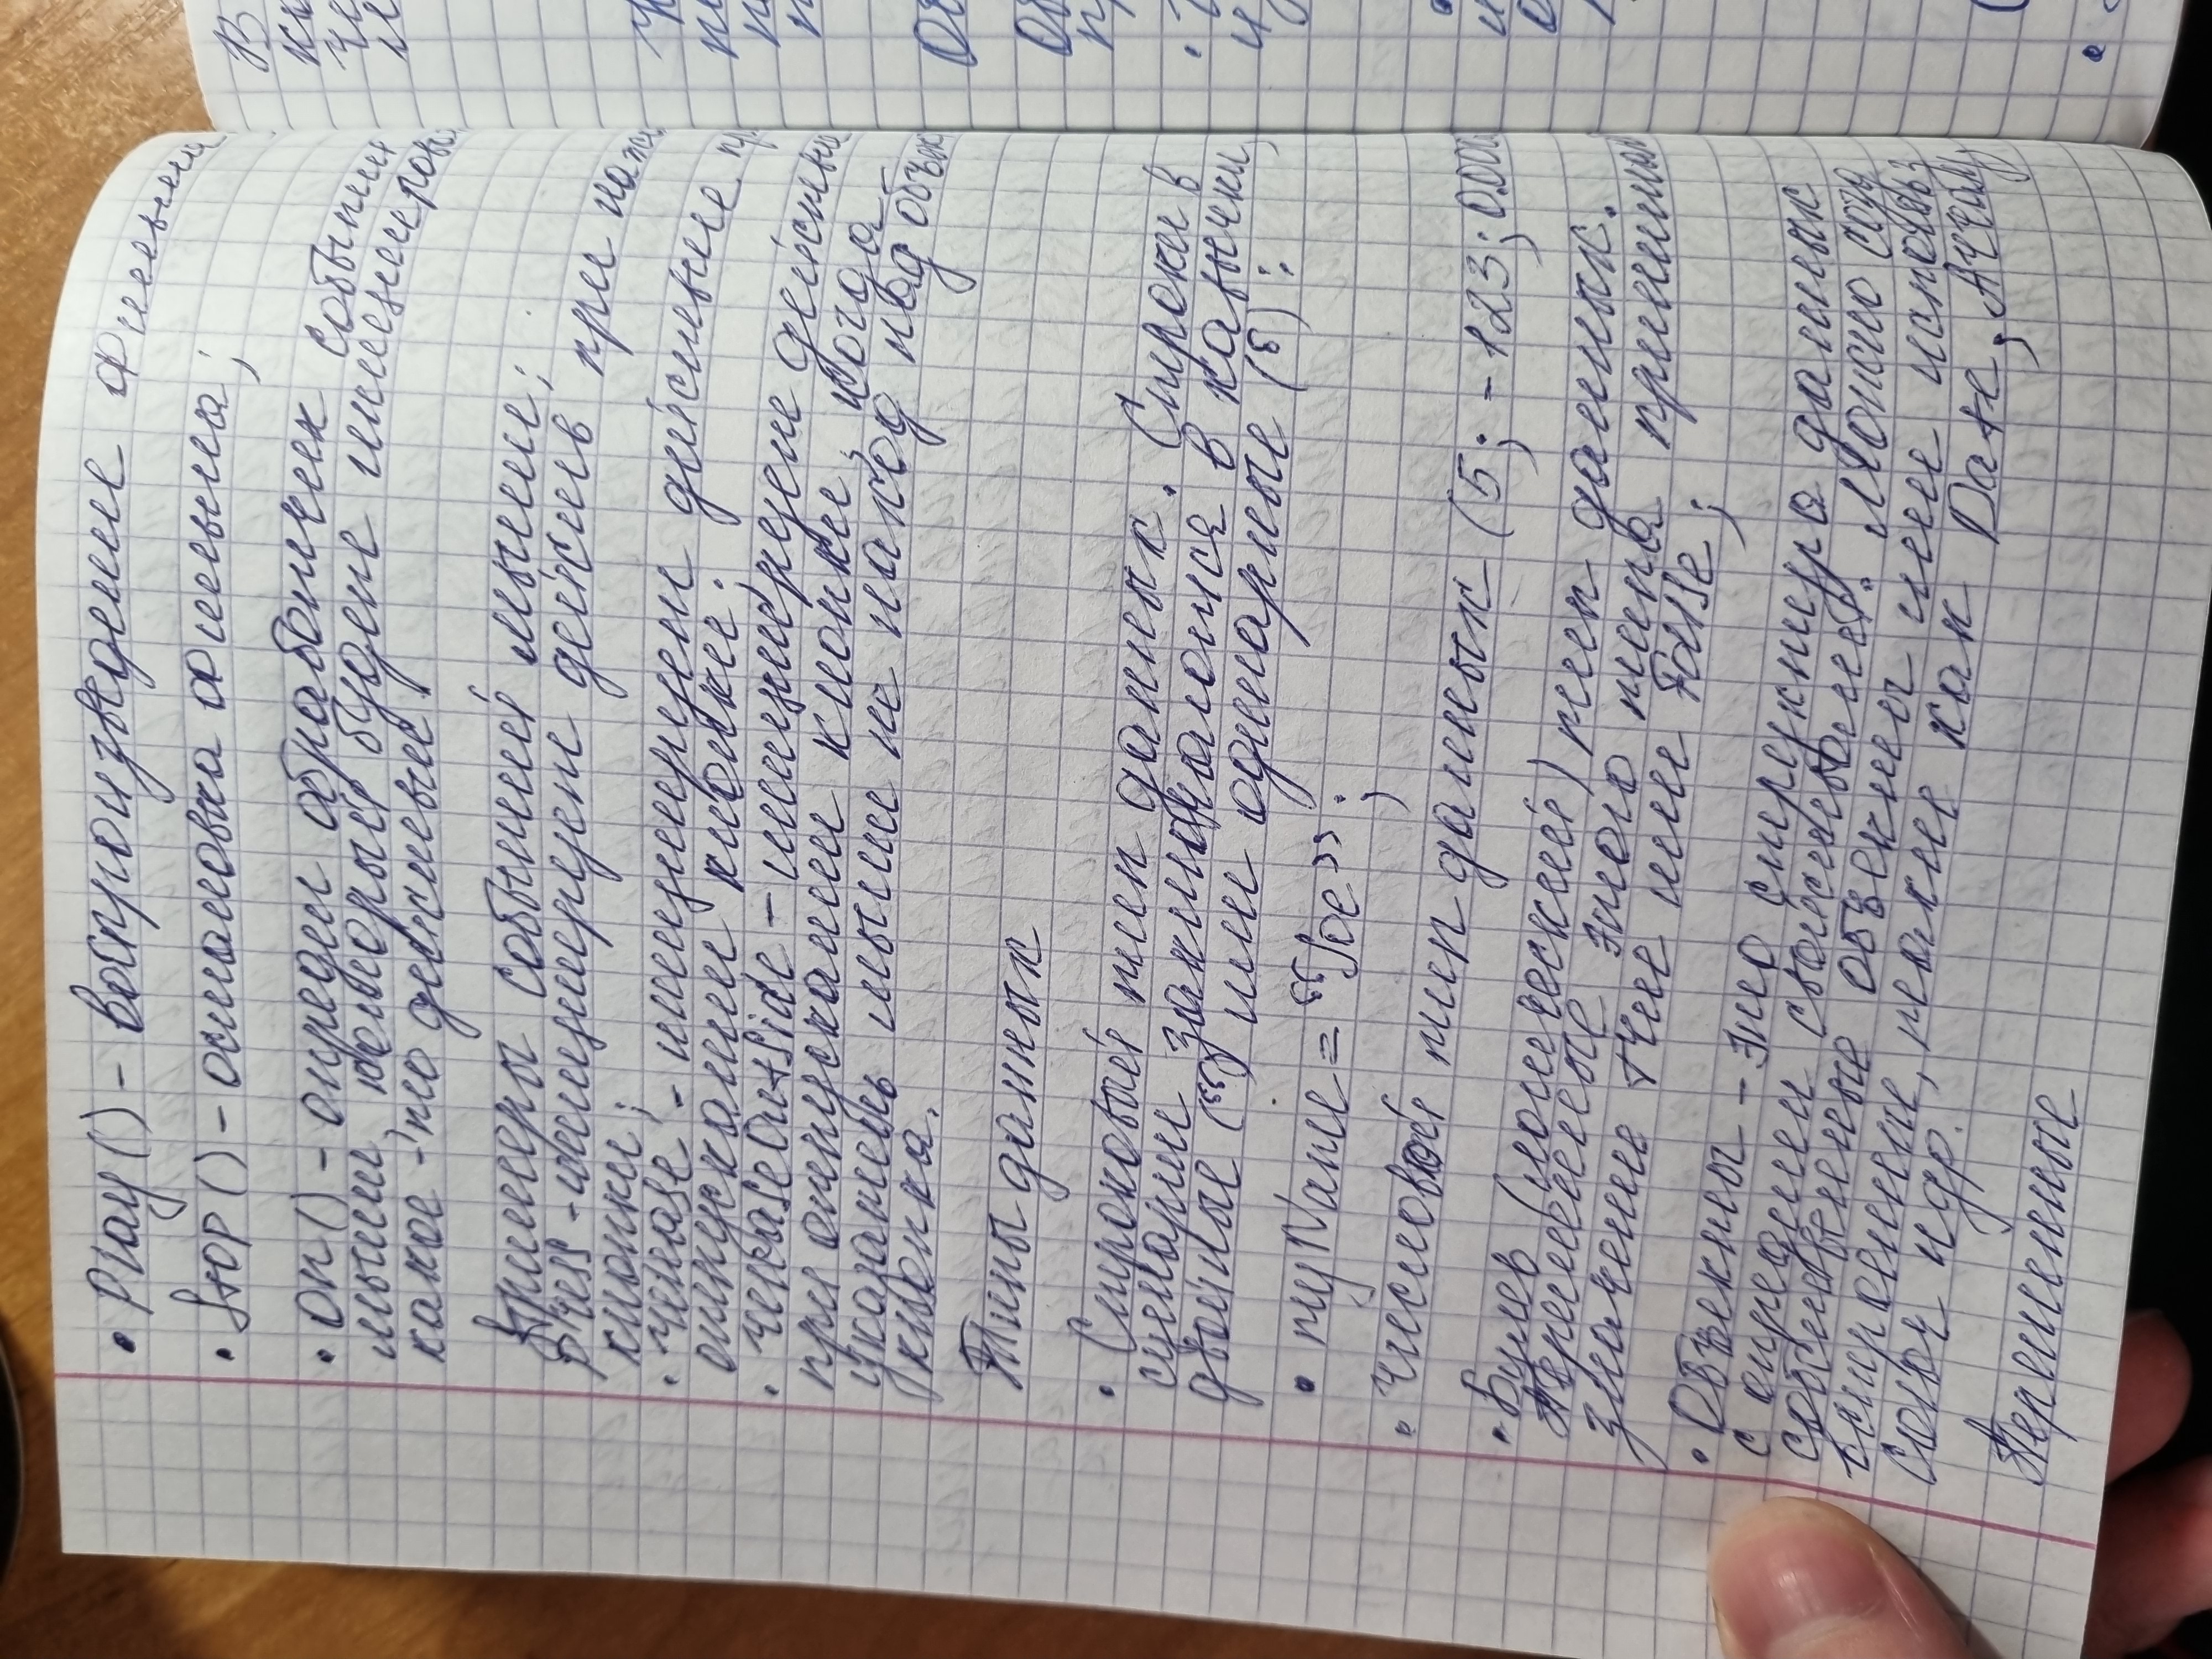 • Play() - воспроизведение фильма
• Stop() - остановка фильма;
• On() - определ обработчик события
мыши, который будет инициировать
какое-то действие.
Примеры событий мыши;
press - инициирует действ при наж
кнопки;
• release - инициирует действие пр
отпускании кнопки;
• releaseOutside - инициирует действие
при отпускании кнопки, когда
указатель мыши не наход над объек
кнопка.
Типы данных
• Строковый тип данных. Строки в
сценарии заключаются в кавычки,
двойные (“) или одинарные (‘):
• myName = “Joe”;
• числовой тип данных (5; -123; 0.000
• Булев (логический) тип данных.
Переменные этого типа принимают
значение true или False;
• Объекты - это структура данных
с определ свойствами. Можно созд
собственные объекты или использ
встроенные, такие как Date, Array,
Color и др.
Переменные
В